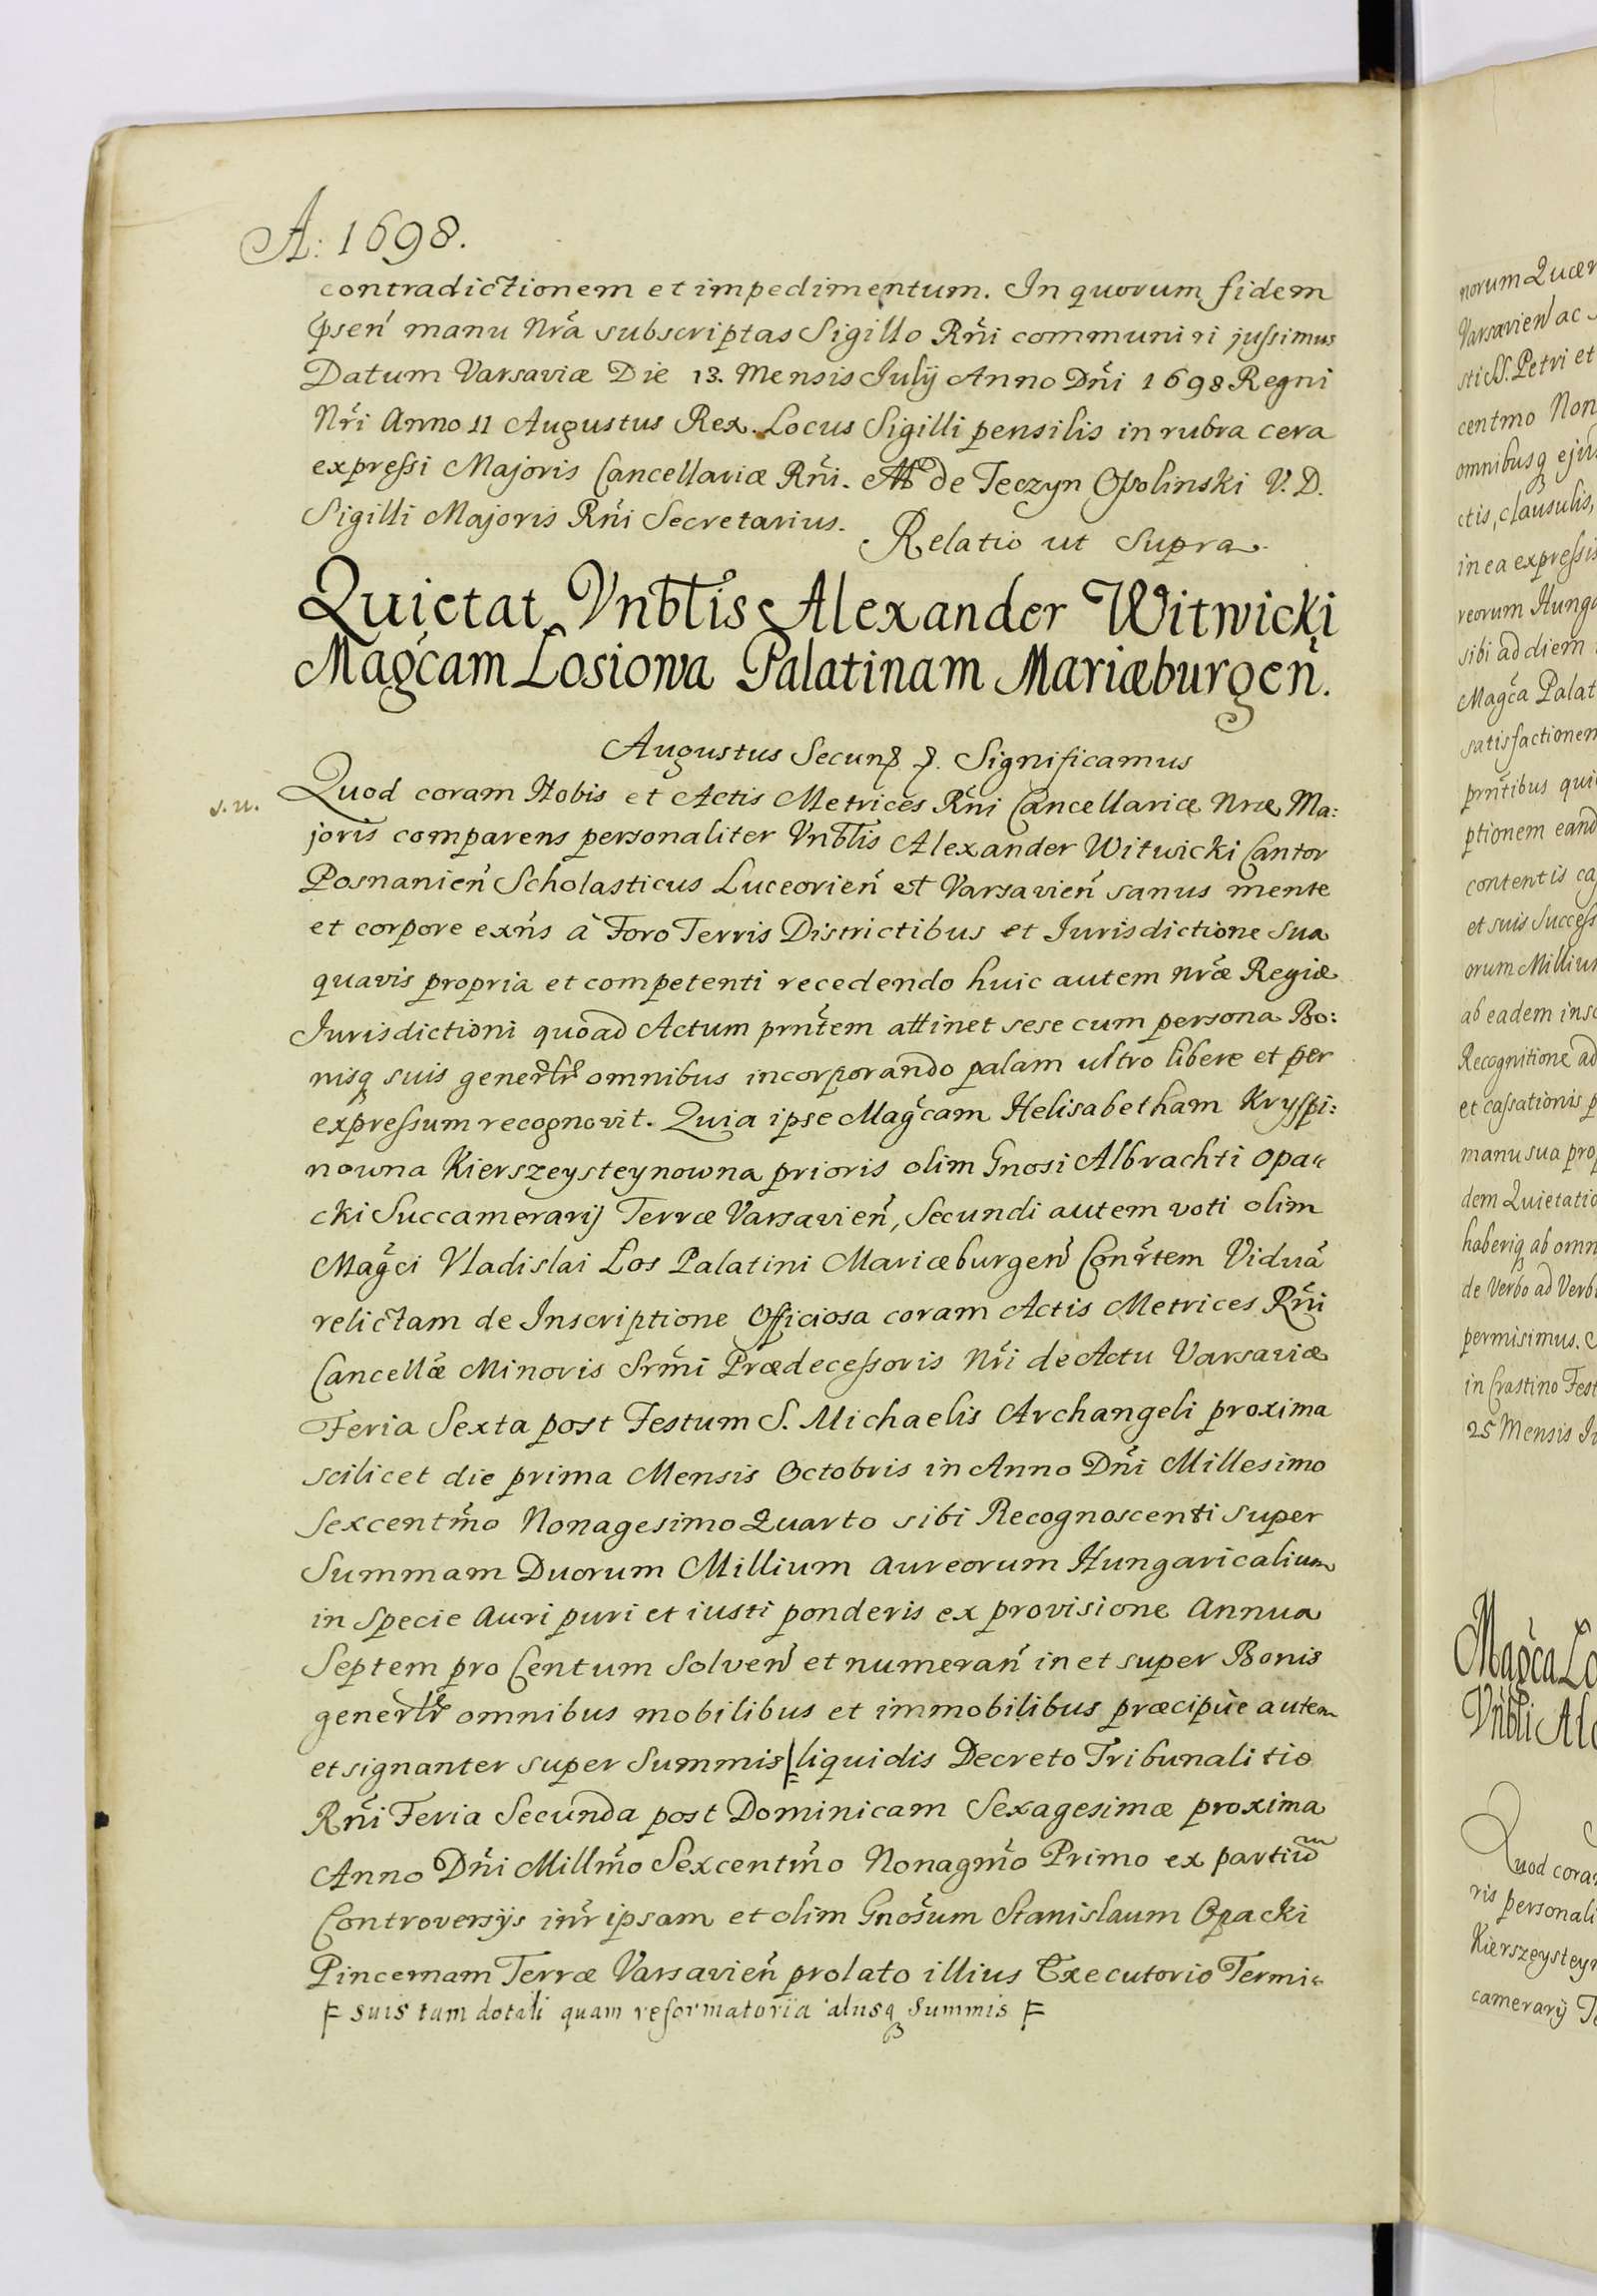 A: 1698.
contradictionem et impedimentum. In quorum fidem
pñsen̄ manu Nrã subscriptas Sigillo Rñi communiri jussimus
Datum Varsaviæ Die 13. Mensis Julij Anno Dñi 1698 Regni
Nr̃i Anno 11 Augustus Rex. Locus Sigilli pensilis in rubra cera
expressi Majoris Cancellariæ Rñi. de Teczyn Ossolinski V. D.
Sigilli Majoris Rñi Secretarius.
Relatio ut Supra.
Quietat Vnbtlis Alexander Witwicki
Magc̃am Losiowa Palatinam Mariæburgen̄.
Augustus Secund9 &. Significamus
s. u.
Quod coram Nobis et Actis Metrices Rñi Cancellariæ Nræ Ma:
joris comparens personaliter Vnbtlis Alexander Witwicki Cantor
Posnanien̄ Scholasticus Luceorien̄ et Varsavien̄ sanus mente
et corpore exñs à Foro Terris Districtibus et Iurisdictione sua
quavis propria et competenti recedendo huic autem nr̃æ Regiæ
Jurisdictioni quoad Actum prñtem attinet sese cum persona Bo:
nisq suis genertlr omnibus incorporando palam ultro libere et per
expressum recognovit. Quia ipse Magc̃am Helisabetham Kryspi:
nowna Kierszeysteynowna prioris olim Gnosi Albrachti Opa:
cki Succamerarij Terræ Varsavien̄, Secundi autem voti olim
Magc̃i Vladislai Los Palatini Mariæburgen̄ Conr̃tem Viduã
relictam de Inscriptione Officiosa coram Actis Metrices Rñi
Cancellæ Minoris Srm̃i Prædecessoris Nr̃i de Actu Varsaviæ
Feria Sexta post Festum S. Michaelis Archangeli proxima
scilicet die prima Mensis Octobris in Anno Dñi Millesimo
Sexcentm̃o Nonagesimo Quarto sibi Recognoscenti super
Summam Duorum Millium aureorum Hungaricalium
in Specie Auri puri et iusti ponderis ex provisione Annua
Septem pro Centum Solven̄ et numeran̄ in et super Bonis
genertlr omnibus mobilibus et immobilibus præcipùe autem
et signanter super Summis ╞ liquidis Decreto Tribunalitio
Rñi Feria Secunda post Dominicam Sexagesimæ proxima
Anno Dñi Millm̃o Sexcentm̃o Nonagm̃o Primo ex partium
Controversijs inr̃ ipsam et olim Gnosum Stanislaum Opacki
Pincernam Terræ Varsavien̄ prolato illius Executorio Termi:
╞ suis tam dotali quam reformatoria alusq Summis ╞
norum Quær
Varsavien̄ ac
sti SS. Petri et
centmo Non
omnibusq ejus
ctis, clausulis,
in ea expressis
reorum Hunga
sibi ad diem
Magc̃a Palat
satisfactionem
prñtibus qui
ptionem eand
contentis ca
et suis Success
orum Millium
ab eadem insc
Recognitione ad
et cassationis p
manu sua prop
dem Quietatio
haberiq ab omn
de Verbo ad Verb
permisimus.
in Crastino Fest
25 Mensis Iu
Magc̃a Lo
Vnbli Ale
Quod cora
ris personali
Kierszeysteyn
camerarij Te